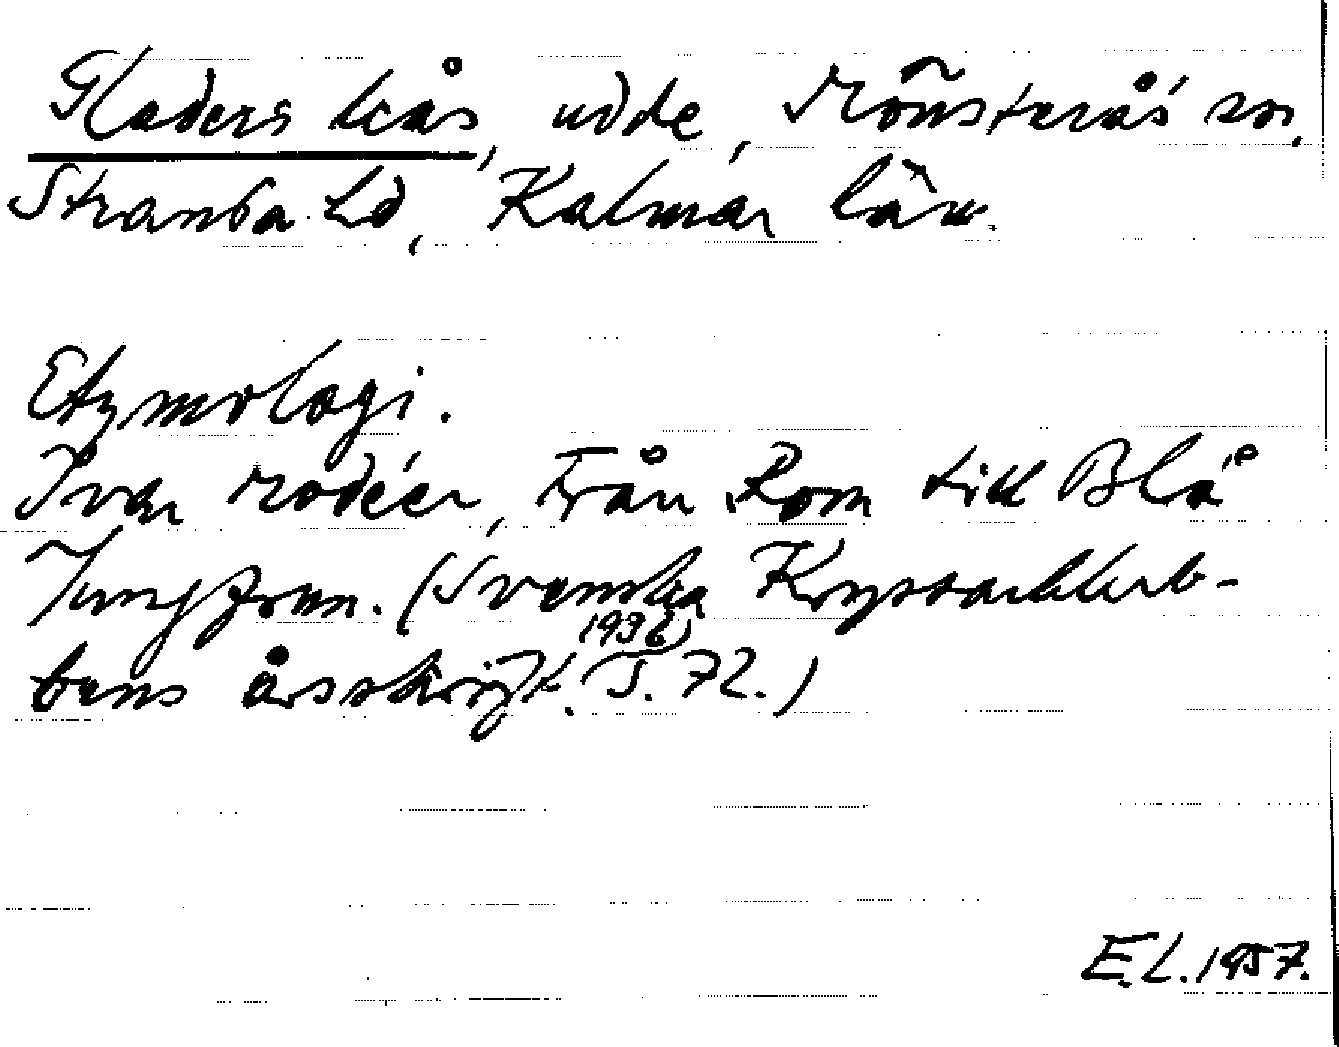 Fladers kås, udde, Mönsterås sn,
Stranda hd, Kalmar län.
Etymologi.
Ivar Modéer, Från Rom till Blå
Jungfrun. (Svenska Kryssarklub-
bens årsskrift. (1936) S. 72.)
E.L. 1957.